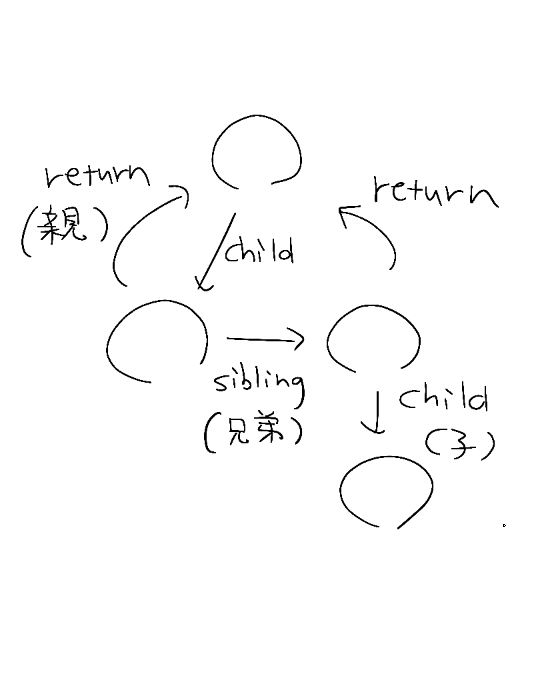 return
(親)
return
child
sibling
(兄弟)
child
(子)